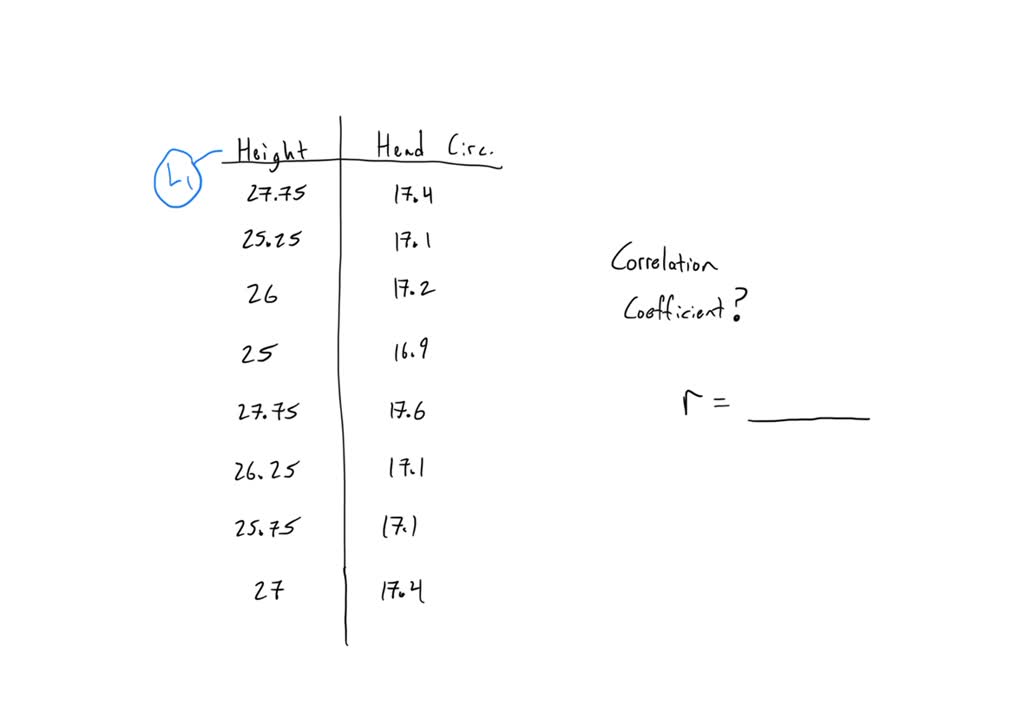 L1 Height Head Circ.
27.75 17.4
25.25 17.1
26 17.2
25 16.9
27.75 17.6
26.25 17.1
25.75 17.1
27 17.4
Correlation
Coefficient?
r = ________